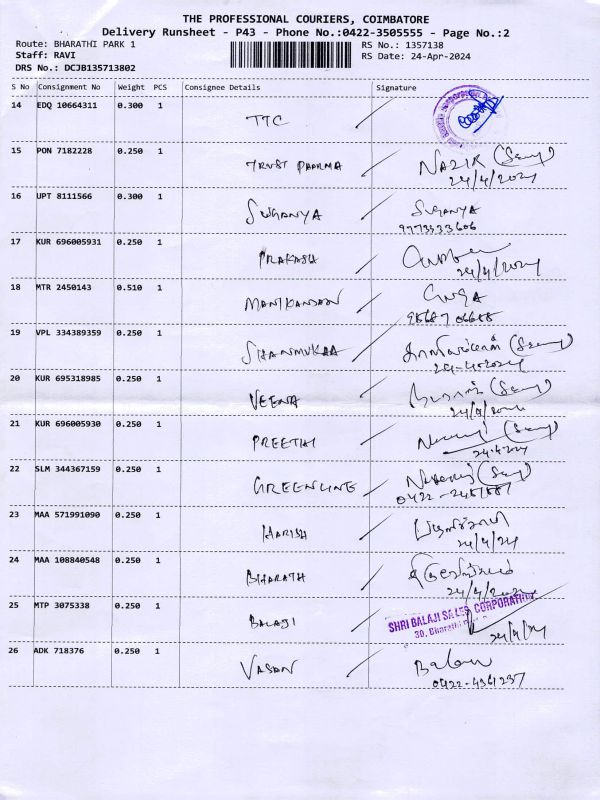 THE PROFESSIONAL COURIERS, COIMBATORE
Delivery Runsheet - P43 - Phone No.:0422-3505555 - Page No.:2
Route: BHARATHI PARK 1
RS No.: 1357138
Staff: RAVI
RS Date: 24-Apr-2024
DRS No.: DCJB135713802
S No Consignment No Weight PCS Consignee Details Signature
14 EDQ 10664311 0.300 1 TTC
15 PON 7182228 0.250 1 TRUST PHARMA NAZIR
24/4/2024
16 UPT 8111566 0.300 1 SUGANYA SUGANYA
9973333606
17 KUR 696005931 0.250 1 PRAKASH
24/4/2024
18 MTR 2450143 0.510 1 MANIKANDAN
19 VPL 334389359 0.250 1 SHANMUKAA
24-4-2024
20 KUR 695318985 0.250 1 VEENA
21 KUR 696005930 0.250 1 PREETHI
24.4.24
22 SLM 344367159 0.250 1 GREENLINE
23 MAA 571991090 0.250 1 HARISH
24/4/24
24 MAA 108840548 0.250 1 BHARATH
24/4/2024
25 MTP 3075338 0.250 1 BALAJI SHRI BALAJI SALES CORPORATION
30, Bharathi
24/4/24
26 ADK 718376 0.250 1 VASAN